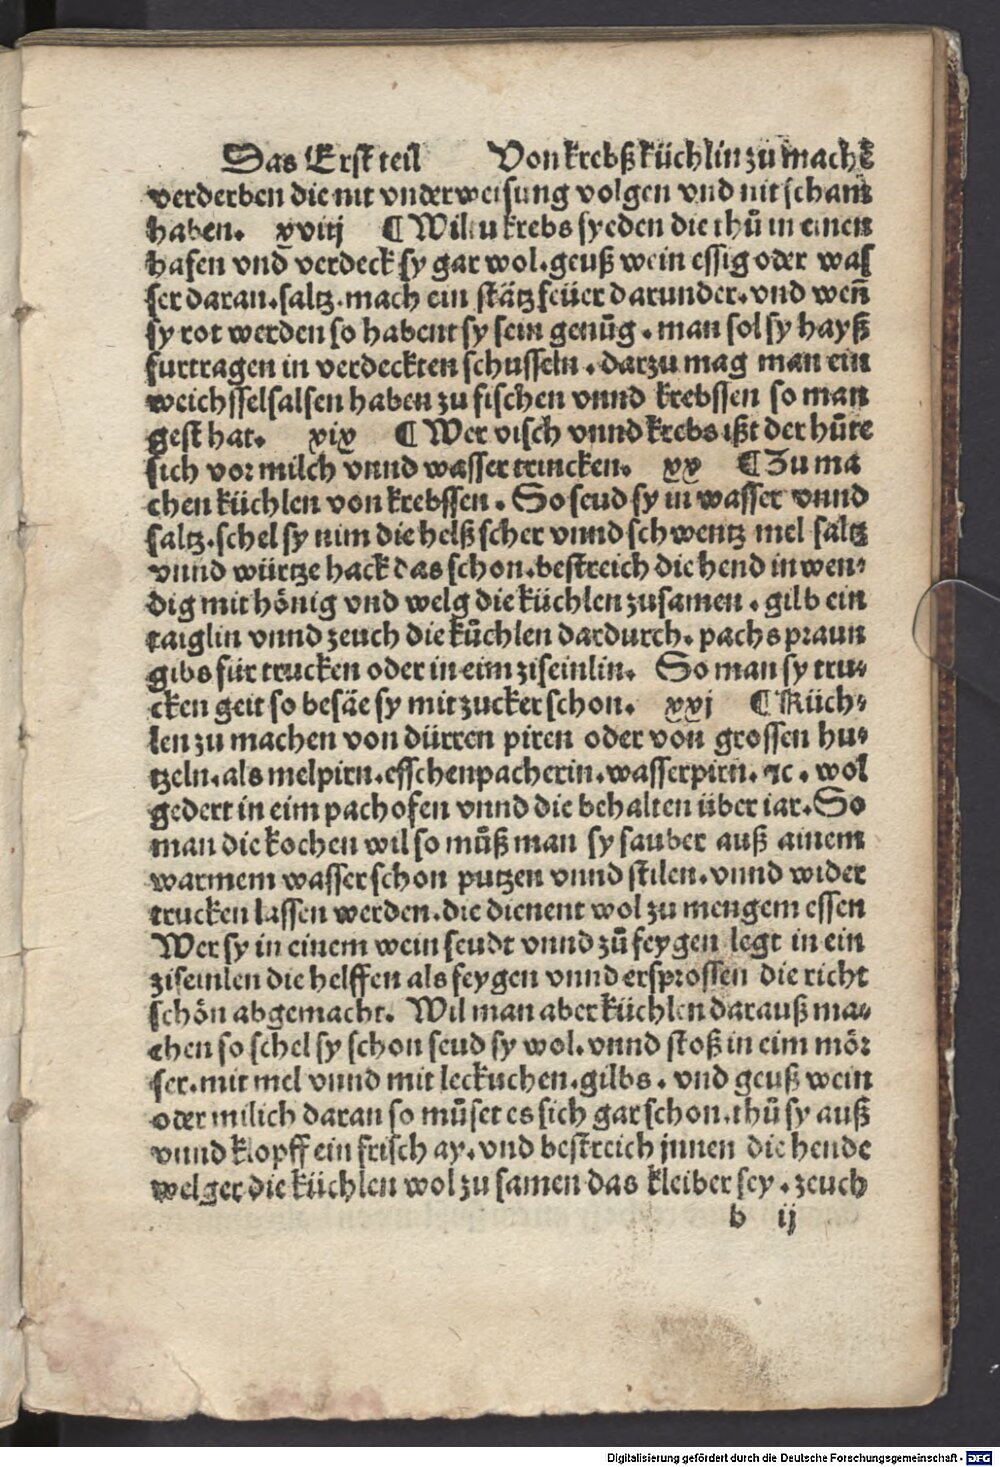 Das Erst teil Von krebß küchlin zu machē
verderben die nit vnderweisung volgen vnd nit scham
haben. xviij ¶ Wiltu krebs syeden die thů in einen
hafen vnd verdeck sy gar wol. geuß wein essig oder was
ser daran. saltz. mach ein stätz feüer darunder. vnd wen̄
sy rot werden so habent sy sein genůg. man sol sy hayß
furtragen in verdeckten schusseln. darzu mag man ein
weichsselsalsen haben zu fischen vnnd krebssen so man
gest hat. xix ¶ Wer visch vnnd krebs ißt der hůte
sich vor milch vnnd wasser trincken. xx ¶ Zu ma
chen küchlen von krebssen. So seud sy in wasser vnnd
saltz. schel sy nim die helß scher vnnd schwentz mel saltz
vnnd würtze hack das schon. bestreich die hend inwen⸗
dig mit hönig vnd welg die küchlen zusamen. gilb ein
taiglin vnnd zeuch die kůchlen dardurch. pachs praun
gibs für trucken oder in eim ziseinlin. So man sy tru⸗
cken geit so besäe sy mit zucker schon. xxj ¶ Küch⸗
len zu machen von dürren piren oder von grossen hu⸗
tzeln. als melpirn. esschenpacherin. wasserpirn. ⁊c. wol
gedert in eim pachofen vnnd die behalten über iar. So
man die kochen wil so můß man sy sauber auß ainem
warmem wasser schon putzen vnnd stilen. vnnd wider
trucken lassen werden. die dienent wol zu mengem essen
Wer sy in einem wein seudt vnnd zů feygen legt in ein
ziseinlen die helffen als feygen vnnd ersprossen die richt
schön abgemacht. Wil man aber küchlen darauß ma⸗
chen so schel sy schon seud sy wol. vnnd stoß in eim mör
ser. mit mel vnnd mit leckuchen. gilbs. vnd geuß wein
oder milich daran so můset es sich gar schon. thů sy auß
vnnd klopff ein frisch ay. vnd bestreich jnnen die hende
welger die küchlen wol zu samen das kleiber sey. zeuch
b ij
Digitalisierung gefördert durch die Deutsche Forschungsgemeinschaft - DFG